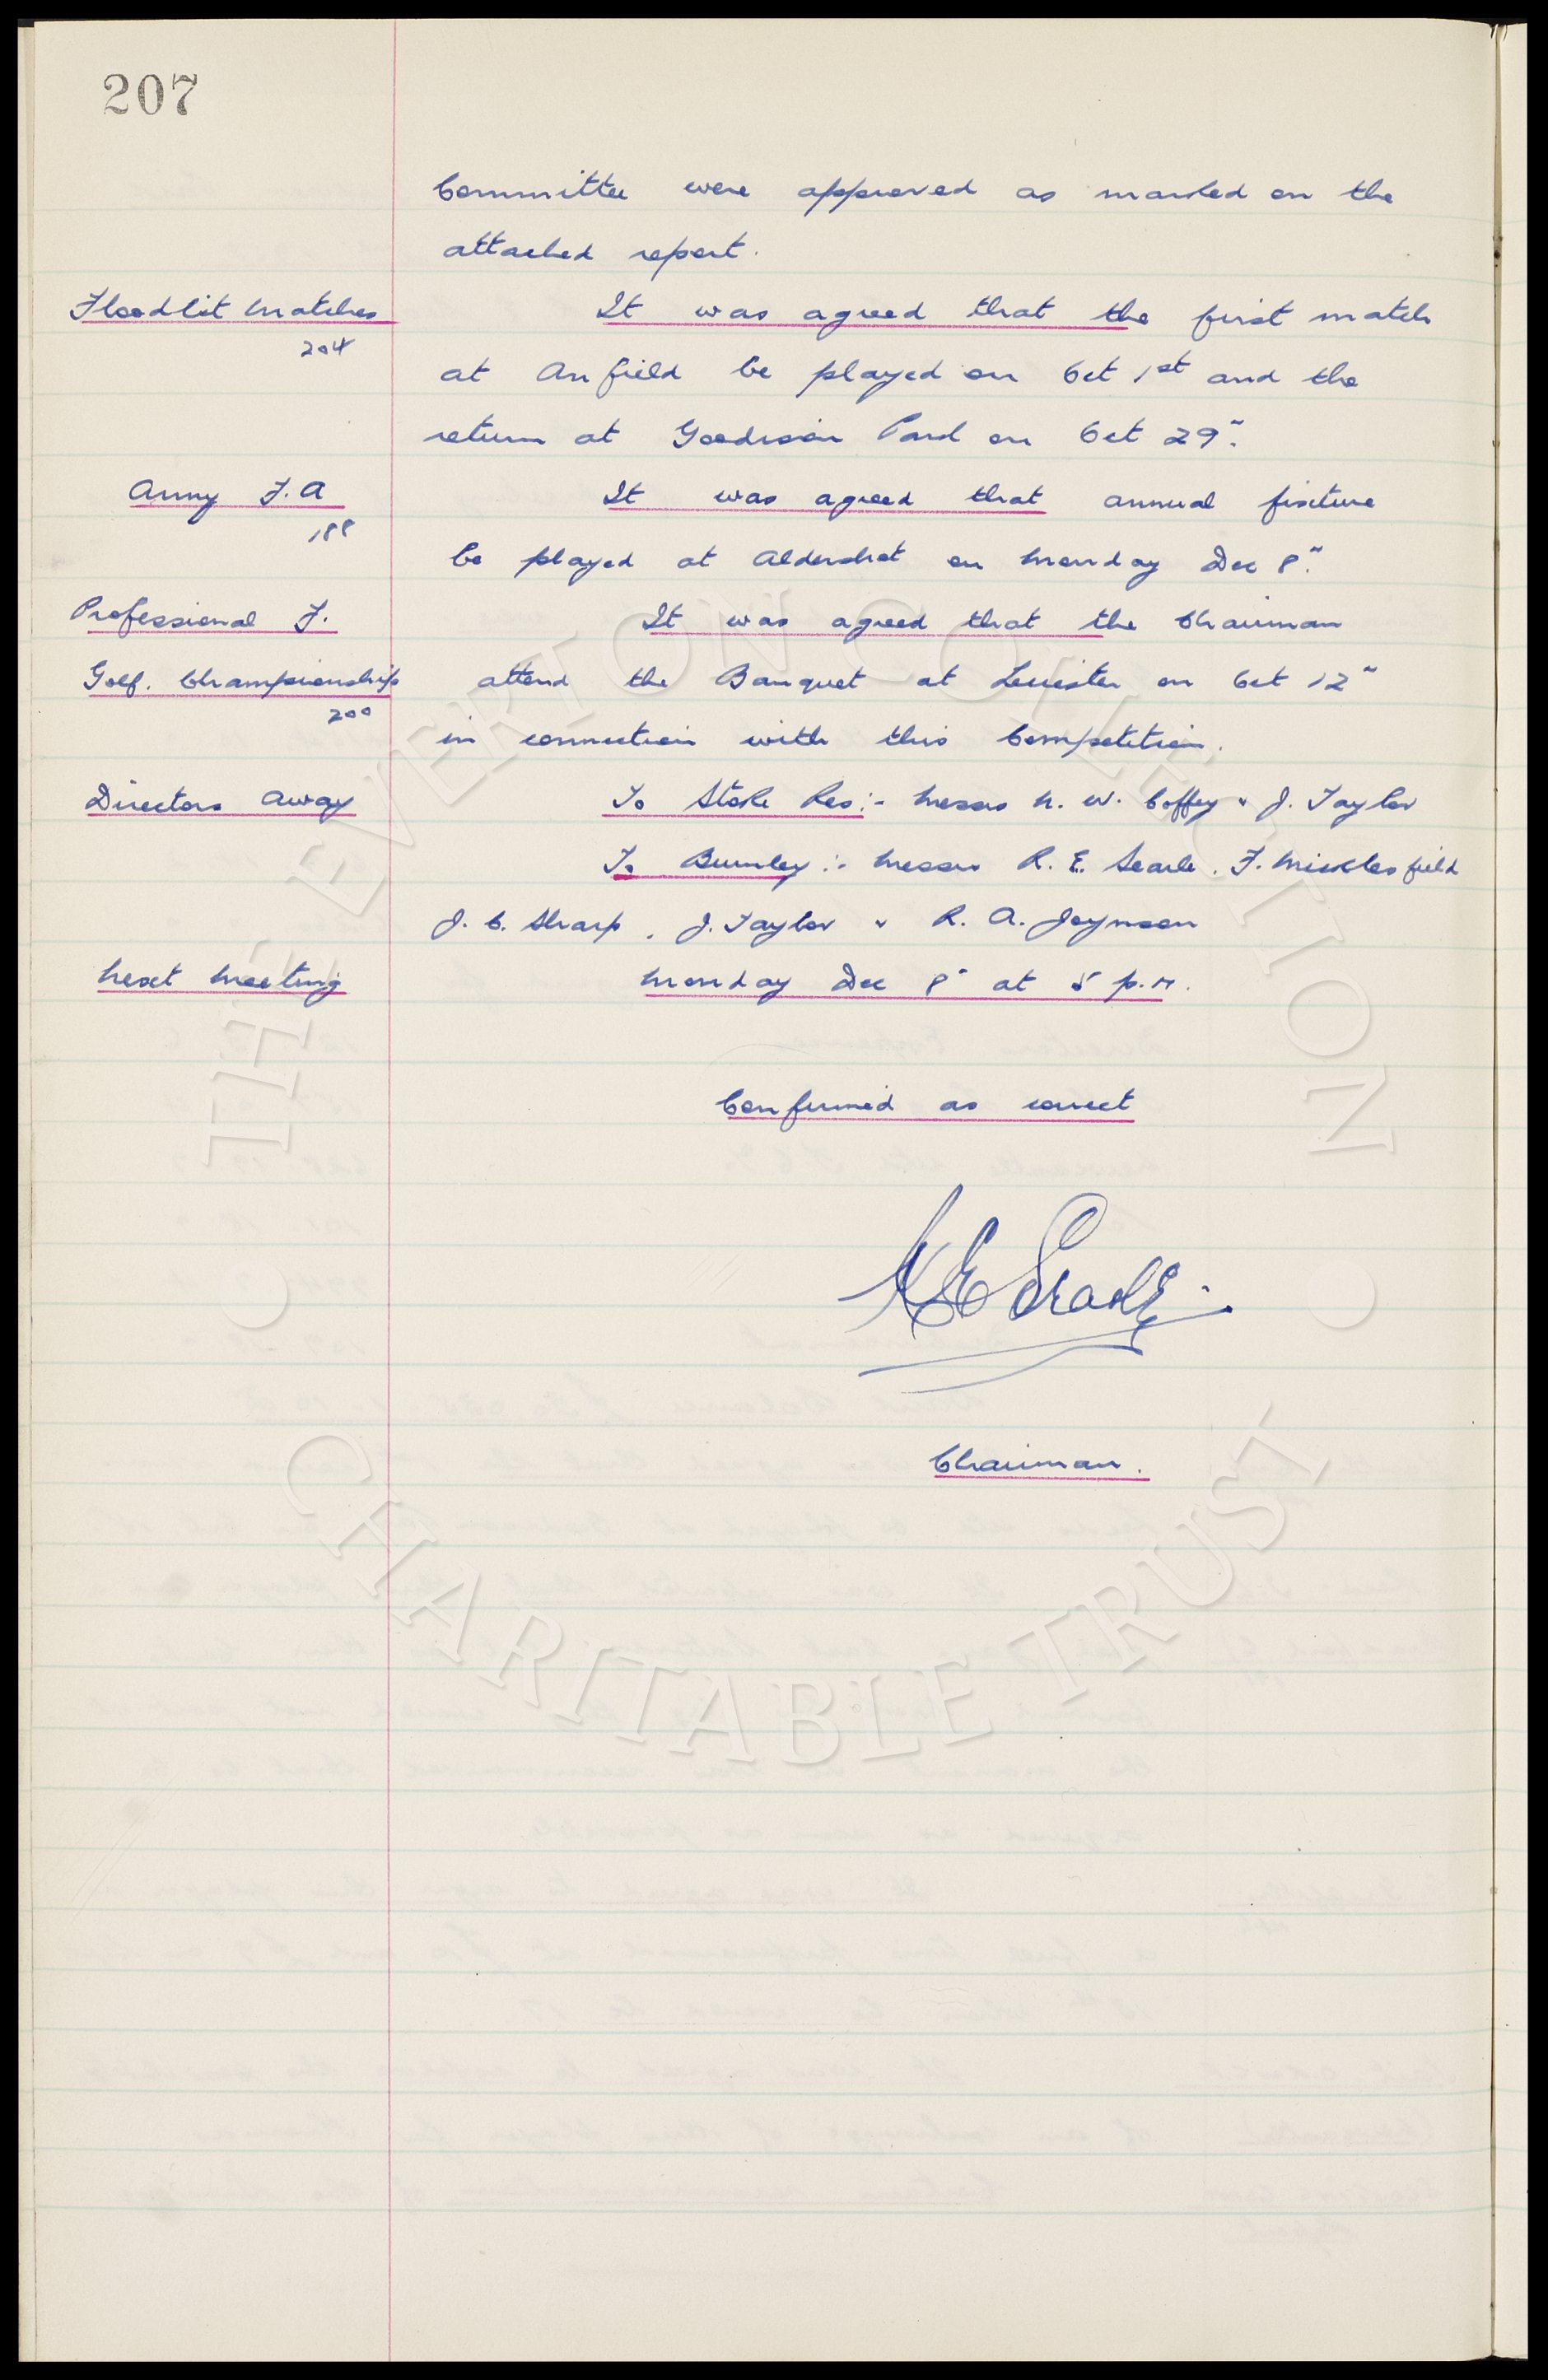 207
Committee were approved as marked on the
attached report.
Floodlit Matches It was agreed that the first match
204
at Anfield be played on Oct 1st and the
return at Goodison Park on Oct 29".
Army F.A It was agreed that annual fixture
188
be played at Aldershot on Monday Dec 8".
Professional F. It was agreed that the Chairman
Golf. Championship attend the Banquet at Leicester on Oct 12"
200
in connection with this Competition.
Directors Away To Stoke Res:- Messrs N. W. Coffey & J. Taylor
To Burnley:- Messrs R. E. Searle. F. Micklesfield
J. C. Sharp, J. Taylor & R. A. Joynson
Next Meeting Monday Dec 8" at 5 p.m.
Confirmed as correct
Chairman.
THE EVERTON COLLECTION
CHARITABLE TRUST